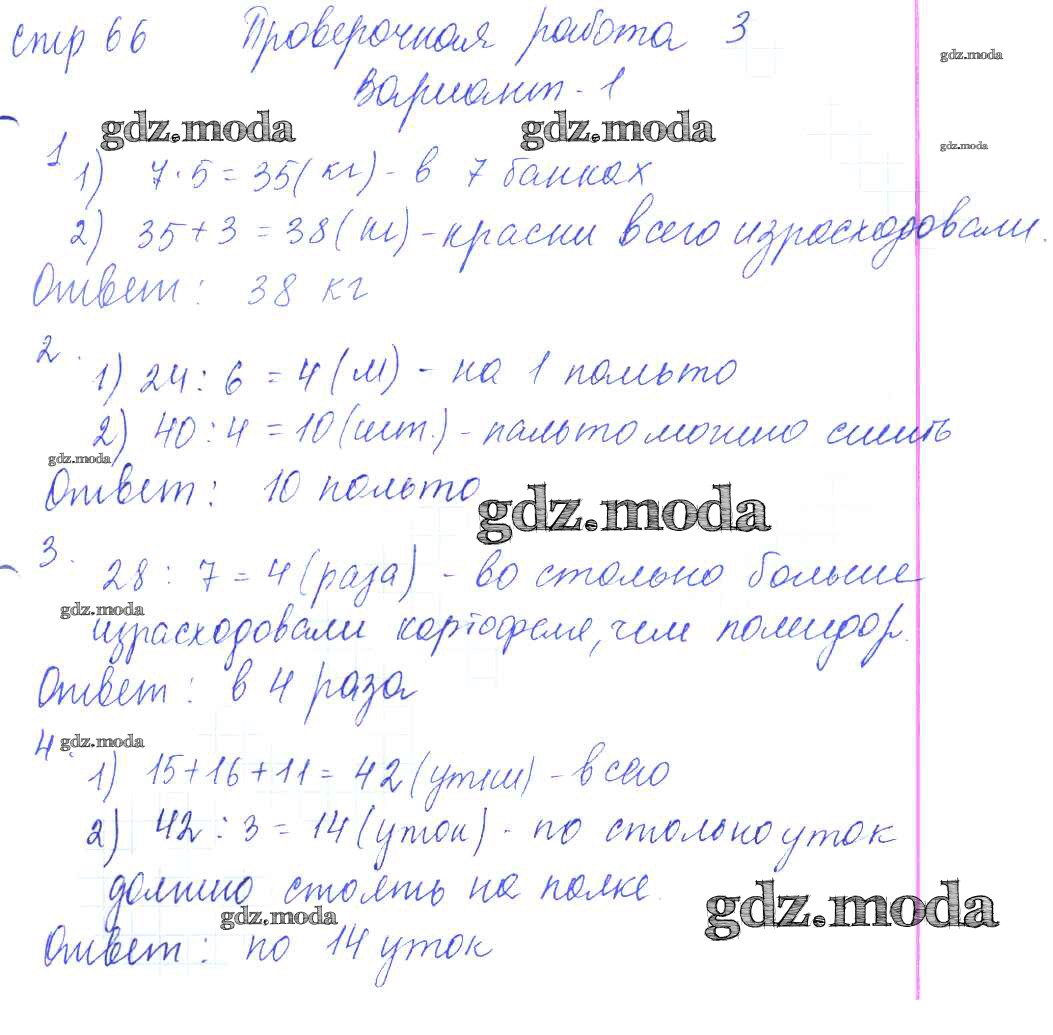 стр 66 Проверочная работа 3
gdz.moda
Вариант - 1
gdz.moda gdz.moda
gdz.moda
1
1) 7·5=35(кг) - в 7 банках
2) 35+3=38(кг) - краски всего израсходовали.
Ответ: 38 кг
2.
1) 24:6=4(м) - на 1 пальто
2) 40:4=10(шт.) - пальто можно сшить
gdz.moda
Ответ: 10 пальто
gdz.moda
3.
28:7=4(раза) - во столько больше
gdz.moda
израсходовали картофеля, чем помидор.
Ответ: в 4 раза
4. gdz.moda
1) 15+16+11=42(утки) - всего
2) 42:3=14(уток) - по столько уток
должно стоять на полке.
gdz.moda gdz.moda
Ответ: по 14 уток